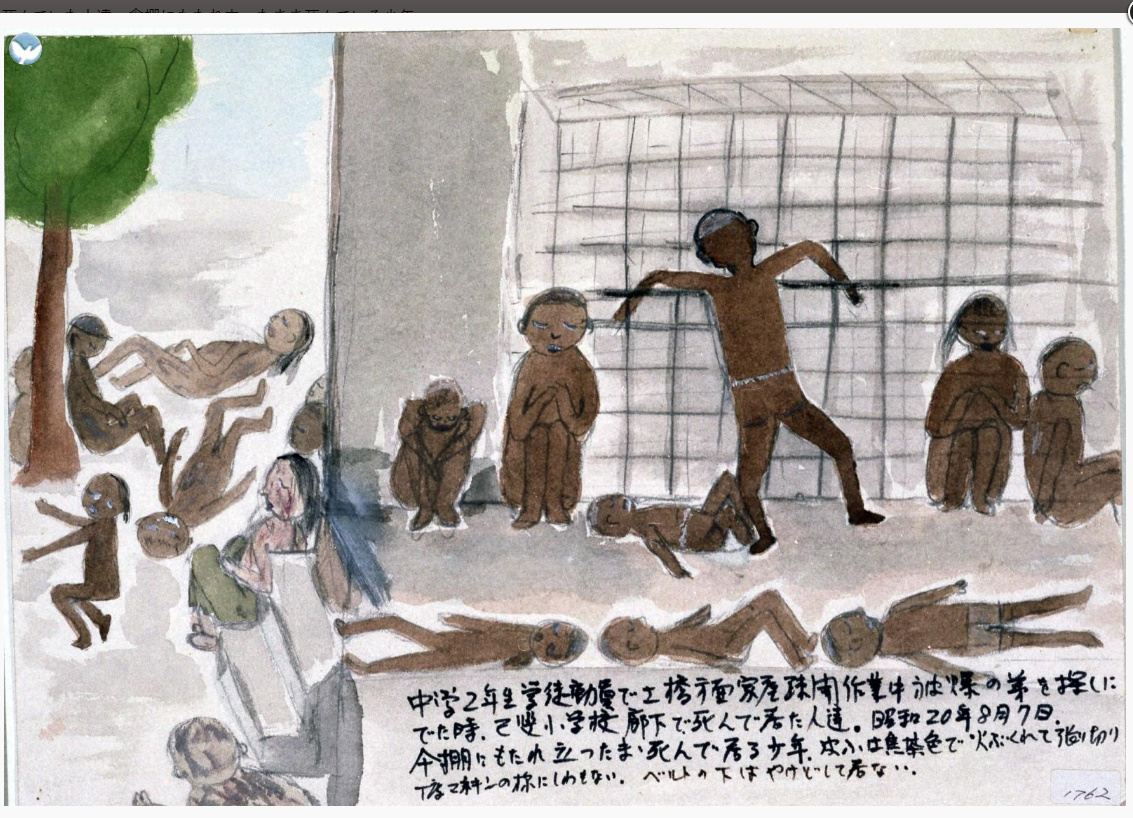 中学2年生学徒動員で土橋方面家屋疎開作業中被爆の弟を探しに
でた時、己斐小学校廊下で死んで居た人達。昭和20年8月7日.
金棚にもたれ立ったまま死んで居る少年. 皮ふは焦茶色で火ぶくれて張り切り
丁度マネキンの様にしわもない. ベルトの下はやけどして居ない.
1762